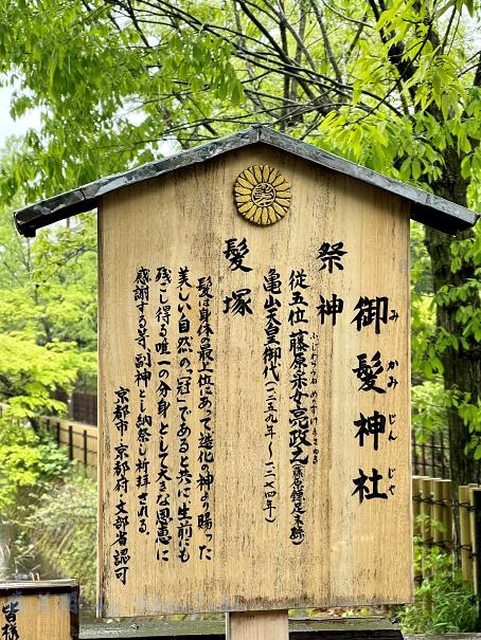 御髪神社
みかみじんじゃ
祭神
従五位 藤原采女亮政之(藤原鎌足末裔)
ふじわらうねめのすけまさゆき
亀山天皇御代(一二五九年〜一二七四年)
髪塚
髪は身体の最上位にあって、造化の神より賜った
美しい自然の「冠」であると共に生前にも
残こし得る唯一の分身として大きな恩恵に
感謝する為、副神とし納祭し祈拝される。
京都市・京都府・文部省認可
皆様